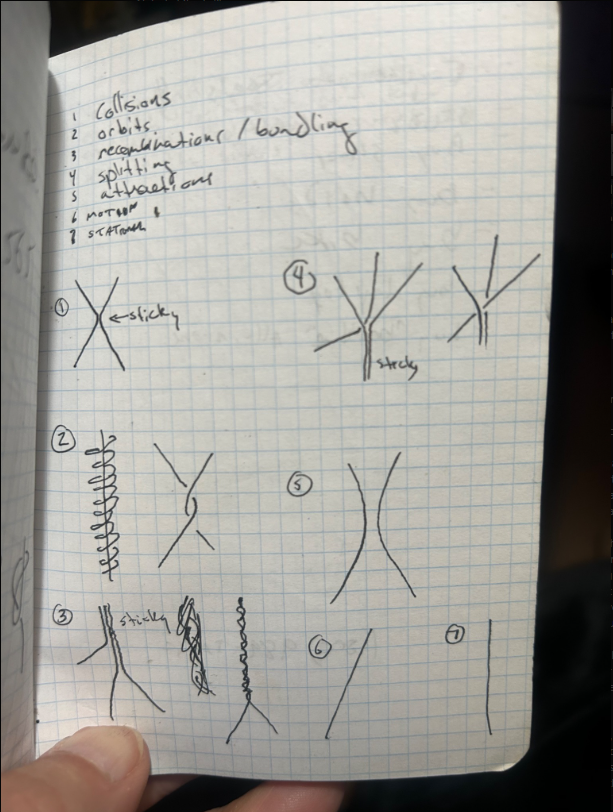 1 Collisions
2 orbits
3 recombinations / bundling
4 splitting
5 attractions
6 MOTION
8
① ←sticky
④
sticky
②
⑤
③ sticky
⑥
⑦